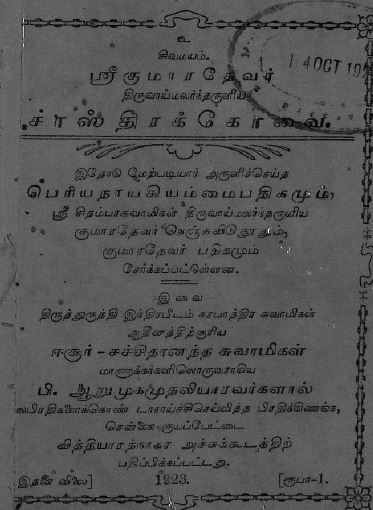 உ
சிவமயம்.
14 OCT 192
ஸ்ரீகுமாரதேவர்
திருவாய்மலர்ந்தருளிய
சாஸ்திரக்கோவை.
இதோடு மேற்படியார் அருளிச்செய்த
பெரியநாயகியம்மைபதிகமும்,
ஸ்ரீ சிதம்பரசுவாமிகள் திருவாய்மலர்ந்தருளிய
குமாரதேவர் நெஞ்சுவிடுதூதும்,
குமாரதேவர் பதிகமும்
சேர்க்கப்பட்டுள்ளன.
இவை
திருத்துருத்தி இந்திரபீடம் கரபாத்திர சுவாமிகள்
ஆதீனத்திற்குரிய
ஈசூர் - சச்சிதானந்த சுவாமிகள்
மாணாக்கர்களிலொருவராகிய
பி. ஆறுமுகமுதலியாரவர்களால்
பலபிரதிகளைக்கொண் டாராய்ச்சிசெய்வித்த பிரதிக்கிணங்க,
சென்னை-சூளைப்பேட்டை
வித்தியாரத்நாகர அச்சுக்கூடத்திற்
பதிப்பிக்கப்பட்டது.
இதன் விலை] 1923. [ரூபா-1.